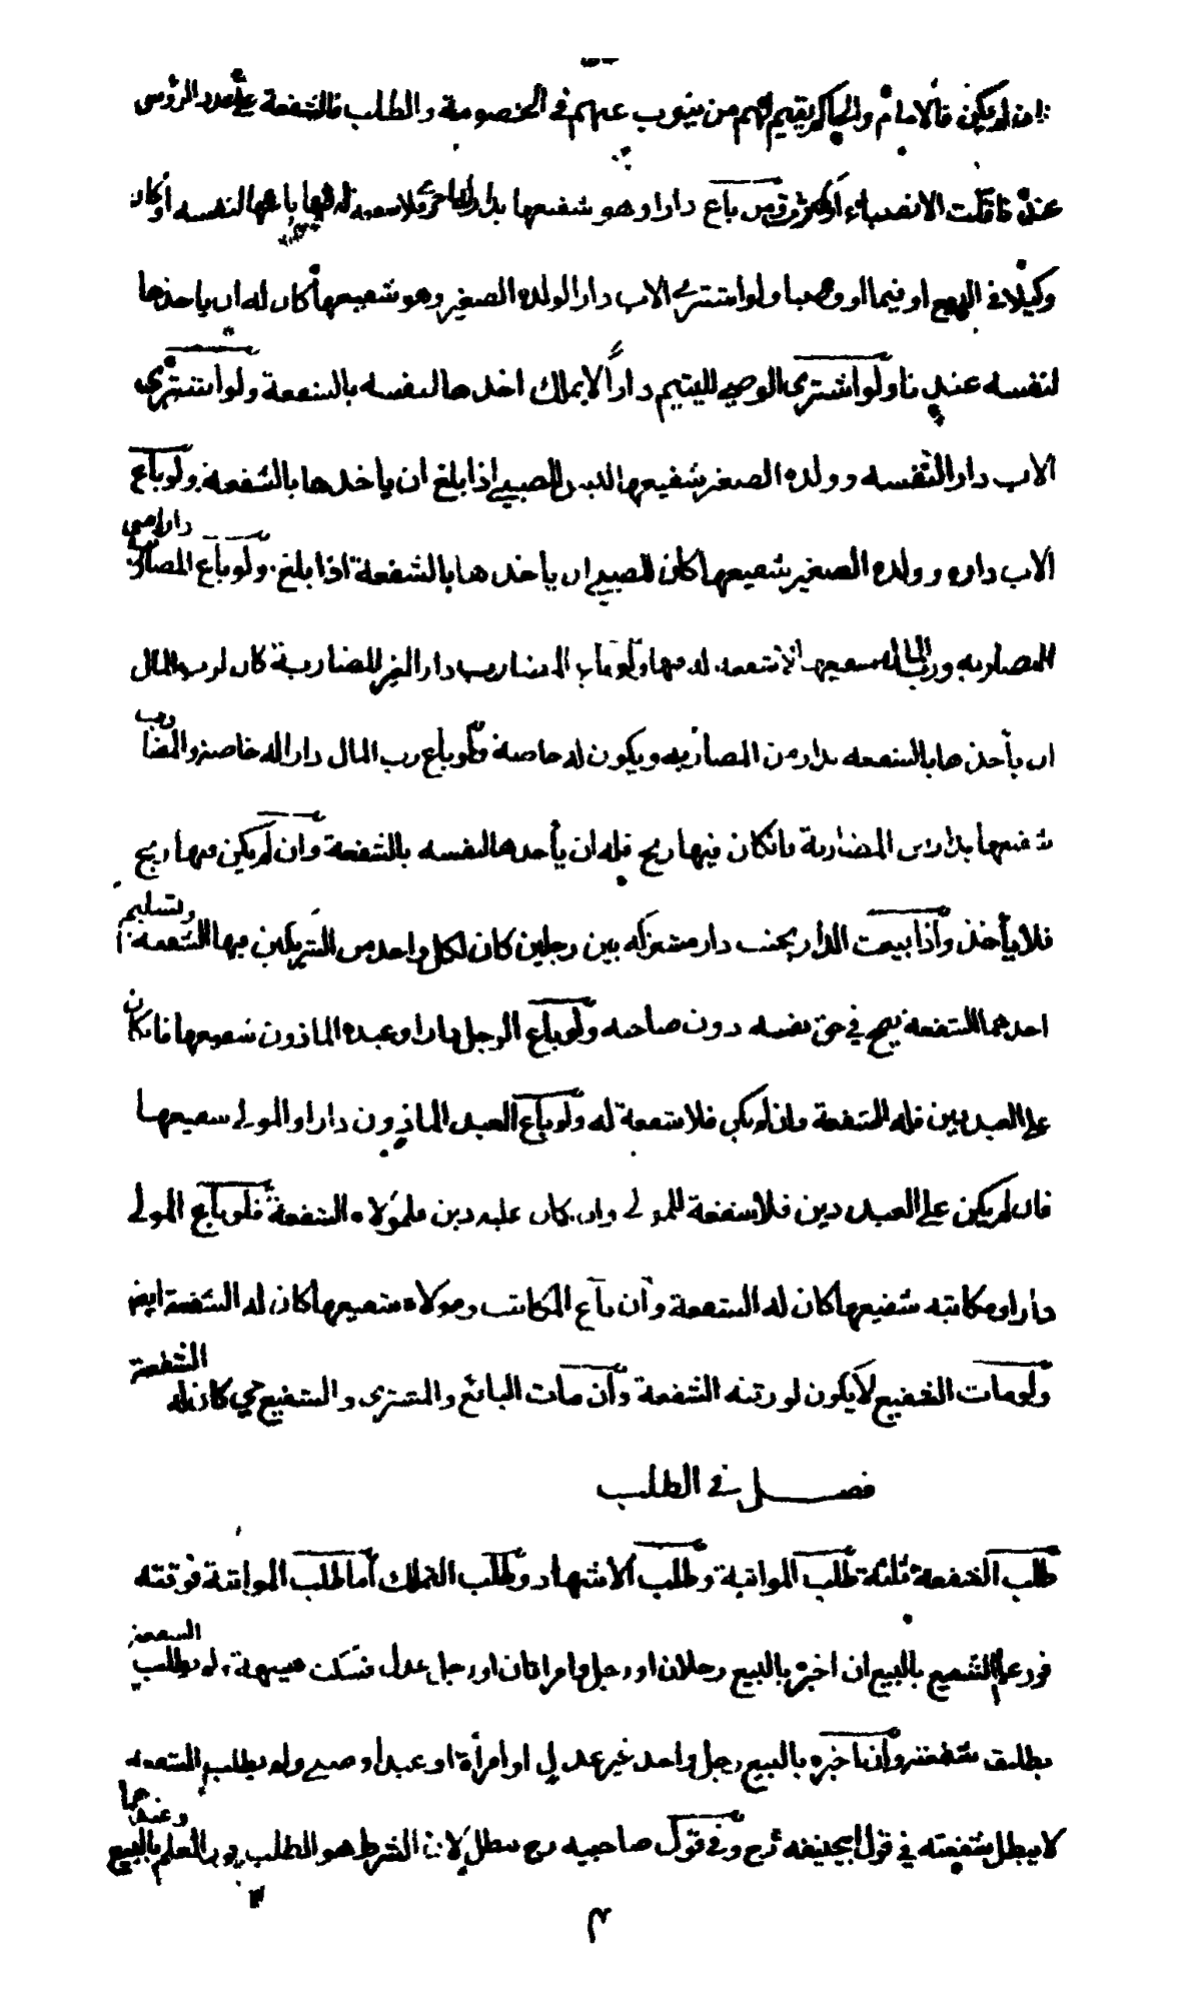 فان لم يكن فالامام والحاكم يقيم لهم من ينوب عنهم في الخصومة والطلب فالشفعة على عدد الرؤس
عندنا قلت الانصباء أو كثرت ومن باع دارا وهو شفيعها بدار اخرى فلا شفعة له فيها باعها لنفسه أو كان
وكيلا في البيع او فيما او وصيا ولو اشترى الاب دارا لولده الصغير وهو شفيعها كان له ان ياخذها
لنفسه عندنا ولو اشترى الوصي لليتيم دارا لا يملك اخذها لنفسه بالشفعة ولو اشترى
الاب دارا لنفسه وولده الصغير شفيعها ليس للصبي اذا بلغ ان ياخذها بالشفعة ولو باع
الاب داره وولده الصغير شفيعها كان للصبي ان ياخذها بالشفعة اذا بلغ ولو باع المضارب دارا من
المضاربة ورب المال شفيعها لا شفعة له فيها ولو باع المضارب دارا لغير المضاربة كان لرب المال
ان يأخذها بالشفعة بدار من المضاربه ويكون له خاصة ولو باع رب المال دارا له خاصة والمضارب
شفيعها بدار من المضاربة فان كان فيها ربح فله ان يأخذها لنفسه بالشفعة وان لم يكن فيها ربح
فلا يأخذ واذا بيعت الدار بجنب دار مشتركه بين رجلين كان لكل واحد من الشريكين فيها الشفعه وتسليم
احدهما الشفعة يصح في حق نفسه دون صاحبه ولو باع الرجل دارا وعبده الماذون شفيعها فان كان
على العبد دين فله الشفعة وان لم يكن فلا شفعة له ولو باع العبد الماذون دارا والمولى شفيعها
فان لم يكن على العبد دين فلا شفعة للمولى وان كان عليه دين فلمولاه الشفعة فلو باع المولى
دارا ومكاتبه شفيعها كان له الشفعة وان باع المكاتب ومولاه شفيعها كان له الشفعة ايضا
ولو مات الشفيع لا يكون لورثته الشفعة وان مات البائع والمشترى والشفيع حي كان له الشفعة
فصل في الطلب
طلب الشفعة ثلثة طلب المواثبة وطلب الاشهاد وطلب التملك أما طلب المواثبة فوقته
فور علم الشفيع بالبيع ان اخبره بالبيع رجلان او رجل وامراتان او رجل عدل فسكت هنيهة ولم يطلب الشفعة
بطلت شفعته وان اخبره بالبيع رجل واحد غير عدل او امرأة او عبد او صبي ولم يطلب الشفعه
لا يبطل شفعته في قول ابيحنيفه رح وفي قول صاحبيه رح يبطل لان الشرط هو الطلب بعد العلم بالبيع وعندهما
م